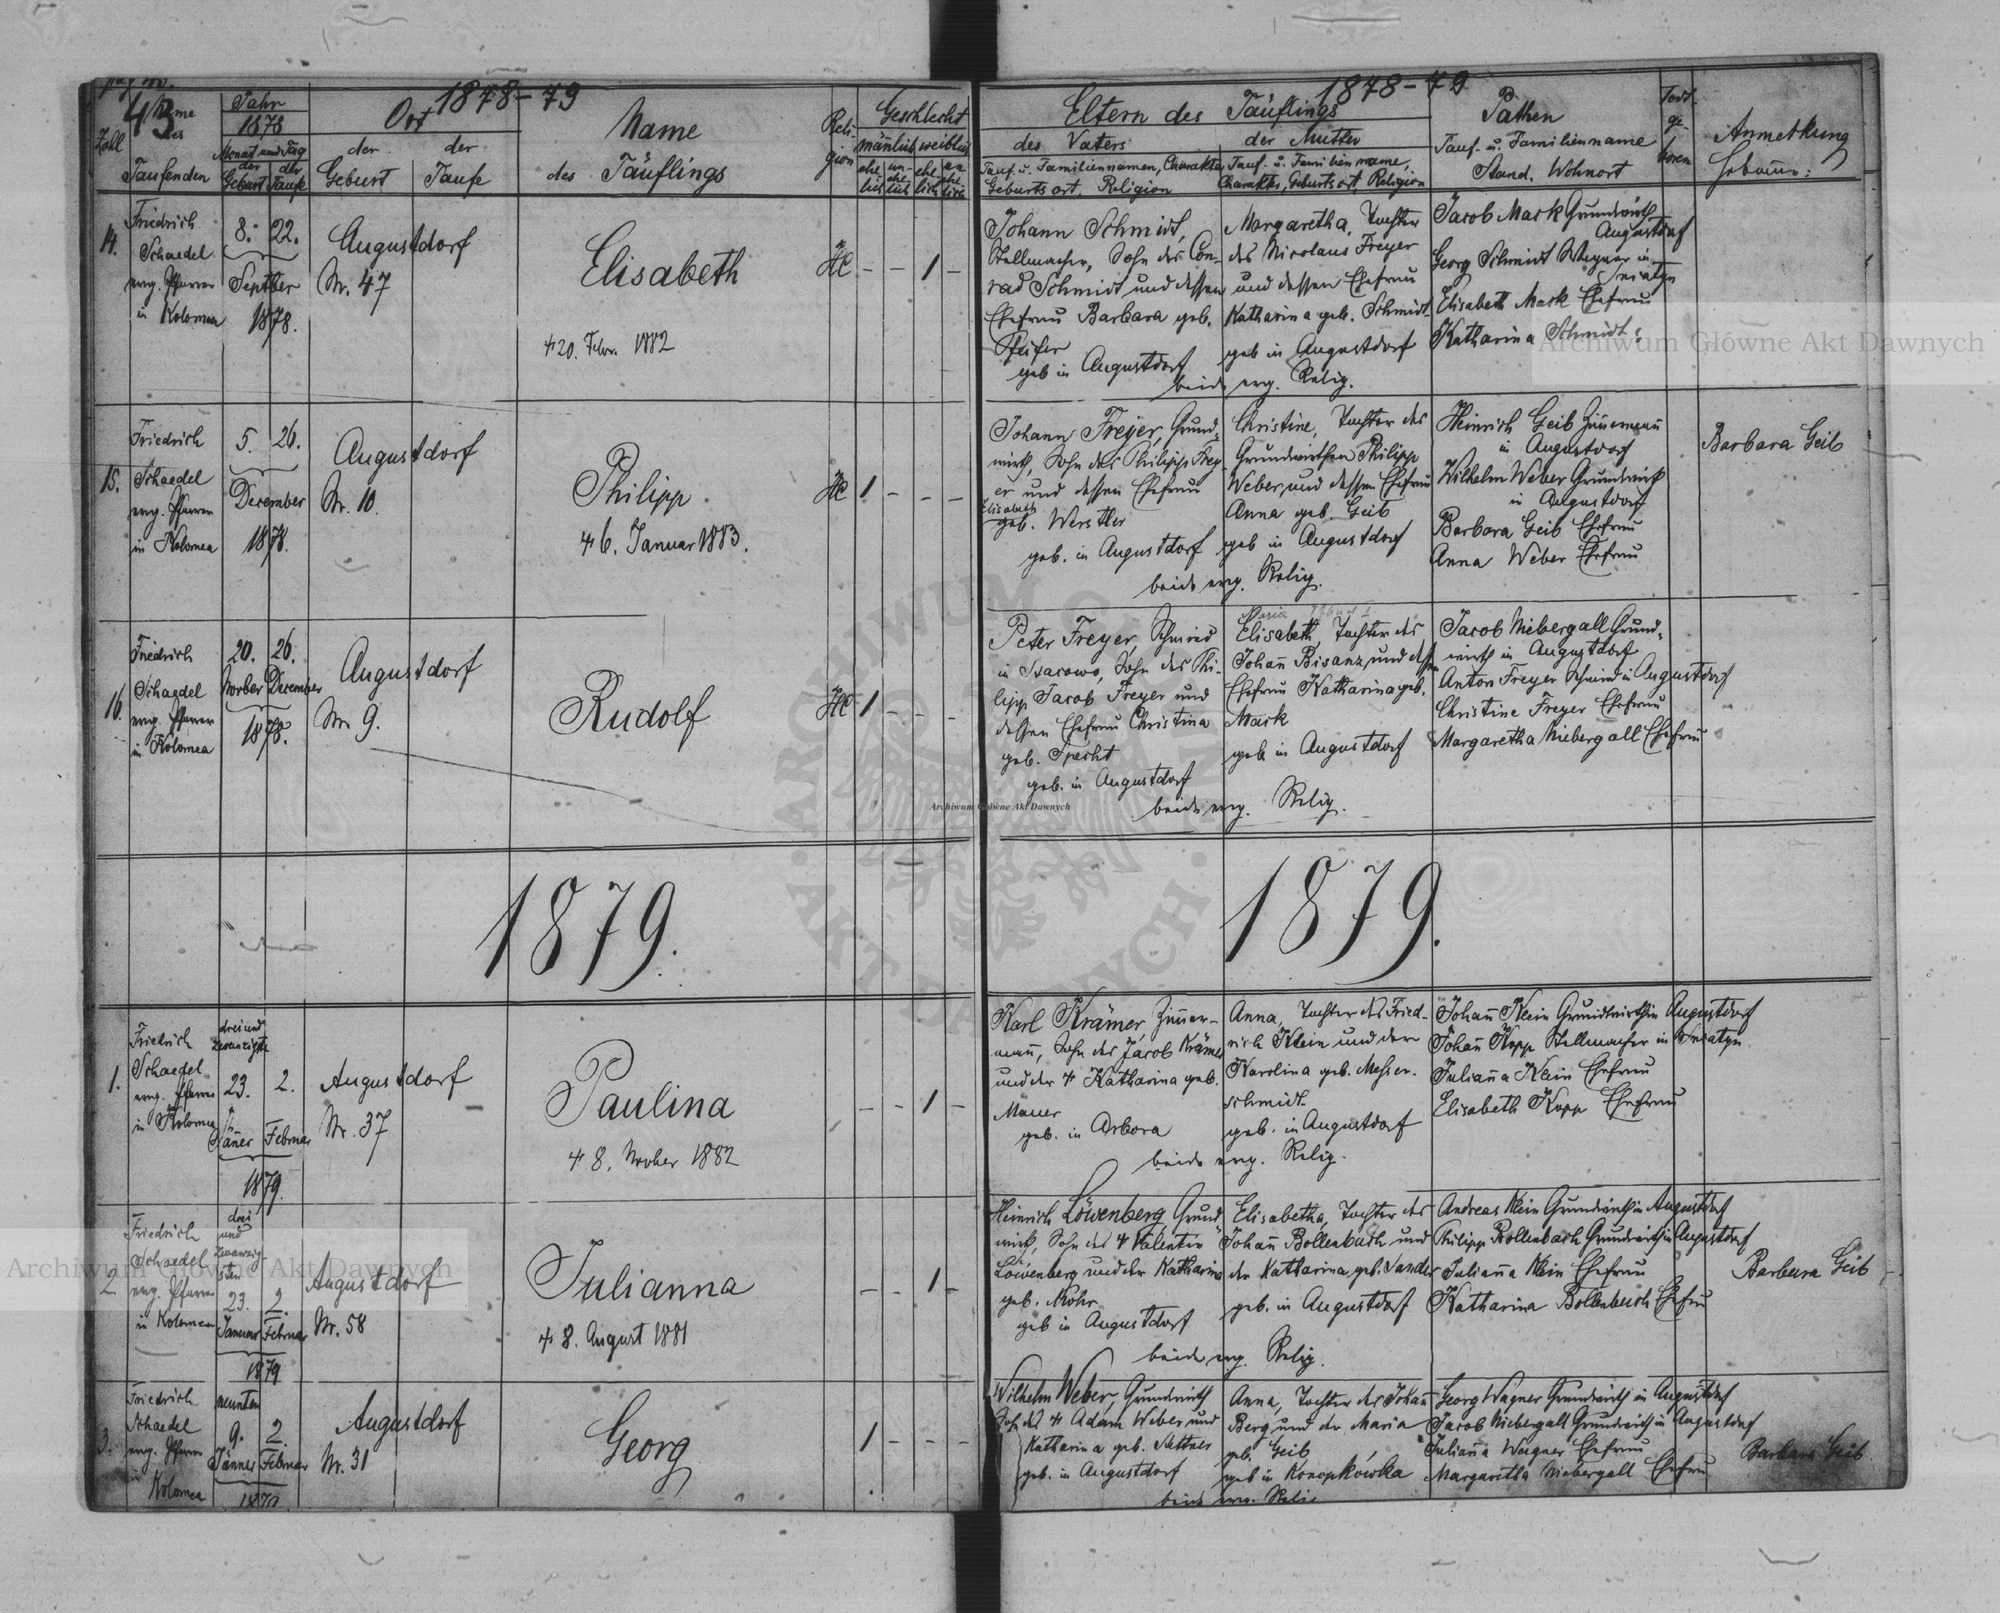 43
1878-79
1878-79
Zahl
Name
des
Taufenden
Jahr
1878
Monat und Tag
der
Geburt
der
Taufe
Ort
der
Geburt
der
Taufe
Name
des Täuflings
Reli-
gion
Geschlecht
männlich weiblich
ehe-
lich
un-
ehe-
lich
ehe-
lich
un-
ehe-
lich
Eltern des Täuflings
des Vaters
der Mutter
Tauf- u. Familiennamen, Charakter
Geburtsort, Religion
Tauf- u. Familienname,
Charakter, Geburtsort, Religion
Pathen
Tauf- u. Familienname
Stand. Wohnort
Todt-
ge-
boren
Anmerkung
Hebamme:
14.
Friedrich
Schaedel
evng. Pfarrer
in Kolomea
8. 22.
Septber
1878.
Augustdorf
Nr. 47
Elisabeth
20. Febr. 1882
HC
- - 1 -
Johann Schmidt,
Stellmacher, Sohn des Con-
rad Schmidt und dessen
Ehefrau Barbara geb.
Pfeifer
geb in Augustdorf
Margaretha, Tochter
des Nicolaus Freyer
und dessen Ehefrau
Katharina geb. Schmidt
geb in Augustdorf
beide evng. Relig.
Jacob Mark Grundwirth
Augustdorf
Georg Schmidt Wagner in
Sniatyn
Elisabeth Mark Ehefrau
Katharina Schmidt
15.
Friedrich
Schaedel
evng. Pfarrer
in Kolomea
5. 26.
December
1878.
Augustdorf
Nr. 10.
Philipp.
6. Januar 1883.
HC
1 - - -
Johann Freyer, Grund-
wirth, Sohn des Philipp Frey-
er und dessen Ehefrau
Elisabeth
geb. Werstler
geb. in Augustdorf
Christine, Tochter des
Grundwirthen Philipp
Weber und dessen Ehefrau
Anna geb. Geib
geb in Augustdorf
beide evng. Relig.
Heinrich Geib Zimmermann
in Augustdorf
Wilhelm Weber Grundwirth
in Augustdorf
Barbara Geib Ehefrau
Anna Weber Ehefrau
Barbara Geib
16.
Friedrich
Schaedel
evng. Pfarrer
in Kolomea
20. 26.
Novber December
1878.
Augustdorf
Nr. 9.
Rudolf
HC
1 - - -
Peter Freyer, Schmied
in Isacowo, Sohn des Phi-
lipp Jacob Freyer und
dessen Ehefrau Christina
geb. Specht
geb. in Augustdorf
Maria
Elisabeth, Tochter des
Johann Bisanz und dessen
Ehefrau Katharina geb.
Mark
geb in Augustdorf
beide evng. Relig.
Jacob Niebergall Grund-
wirth in Augustdorf
Anton Freyer Schmied in Augustdorf
Christine Freyer Ehefrau
Margaretha Niebergall Ehefrau
1879.
1879.
1.
Friedrich
Schaedel
evng. Pfarrer
in Kolomea
drei und
zwanzigste
23. 2.
Jänner Februar
1879.
Augustdorf
Nr. 37
Paulina
8. Novber 1882
- - 1 -
Karl Krämer, Zimmer-
mann, Sohn des Jacob Krämer
und der Katharina geb.
Mauer
geb. in Arbora
Anna, Tochter des Fried-
rich Klein und der
Karolina geb. Messer-
schmidt
geb. in Augustdorf
beide evng. Relig.
Johann Klein Grundwirth in Augustdorf
Johann Kopp Stellmacher in Sniatyn
Julianna Klein Ehefrau
Elisabeth Kopp Ehefrau
2.
Friedrich
Schaedel
evng. Pfarrer
in Kolomea
drei
und
zwanzig-
sten
23. 2.
Januar Februar
1879
Augustdorf
Nr. 58
Julianna
8. August 1881
- - 1 -
Heinrich Löwenberg, Grund-
wirth, Sohn des Valentin
Löwenberg und der Katharina
geb. Mohr
geb in Augustdorf
Elisabetha, Tochter des
Johann Bollenbach und
der Katharina geb. Sander
geb. in Augustdorf
beide evng. Relig.
Andreas Klein Grundwirth in Augustdorf
Philipp Bollenbach Grundwirth in Augustdorf
Julianna Klein Ehefrau
Katharina Bollenbach Ehefrau
Barbara Geib
3.
Friedrich
Schaedel
evng. Pfarrer
in
Kolomea
neunten
9. 2.
Jänner Februar
1879
Augustdorf
Nr. 31
Georg
1 - - -
Wilhelm Weber, Grundwirth
Sohn des Adam Weber und
Katharina geb.
geb. in Augustdorf
Anna, Tochter des Johann
Berg und der Maria
geb. Geib
geb in Konopkówka
beide evng. Relig
Georg Wagner Grundwirth in Augustdorf
Jacob Niebergall Grundwirth in Augustdorf
Julianna Wagner Ehefrau
Margaretha Niebergall Ehefrau
Barbara Geib
Archiwum Główne Akt Dawnych
Archiwum Główne Akt Dawnych
Archiwum Główne Akt Dawnych